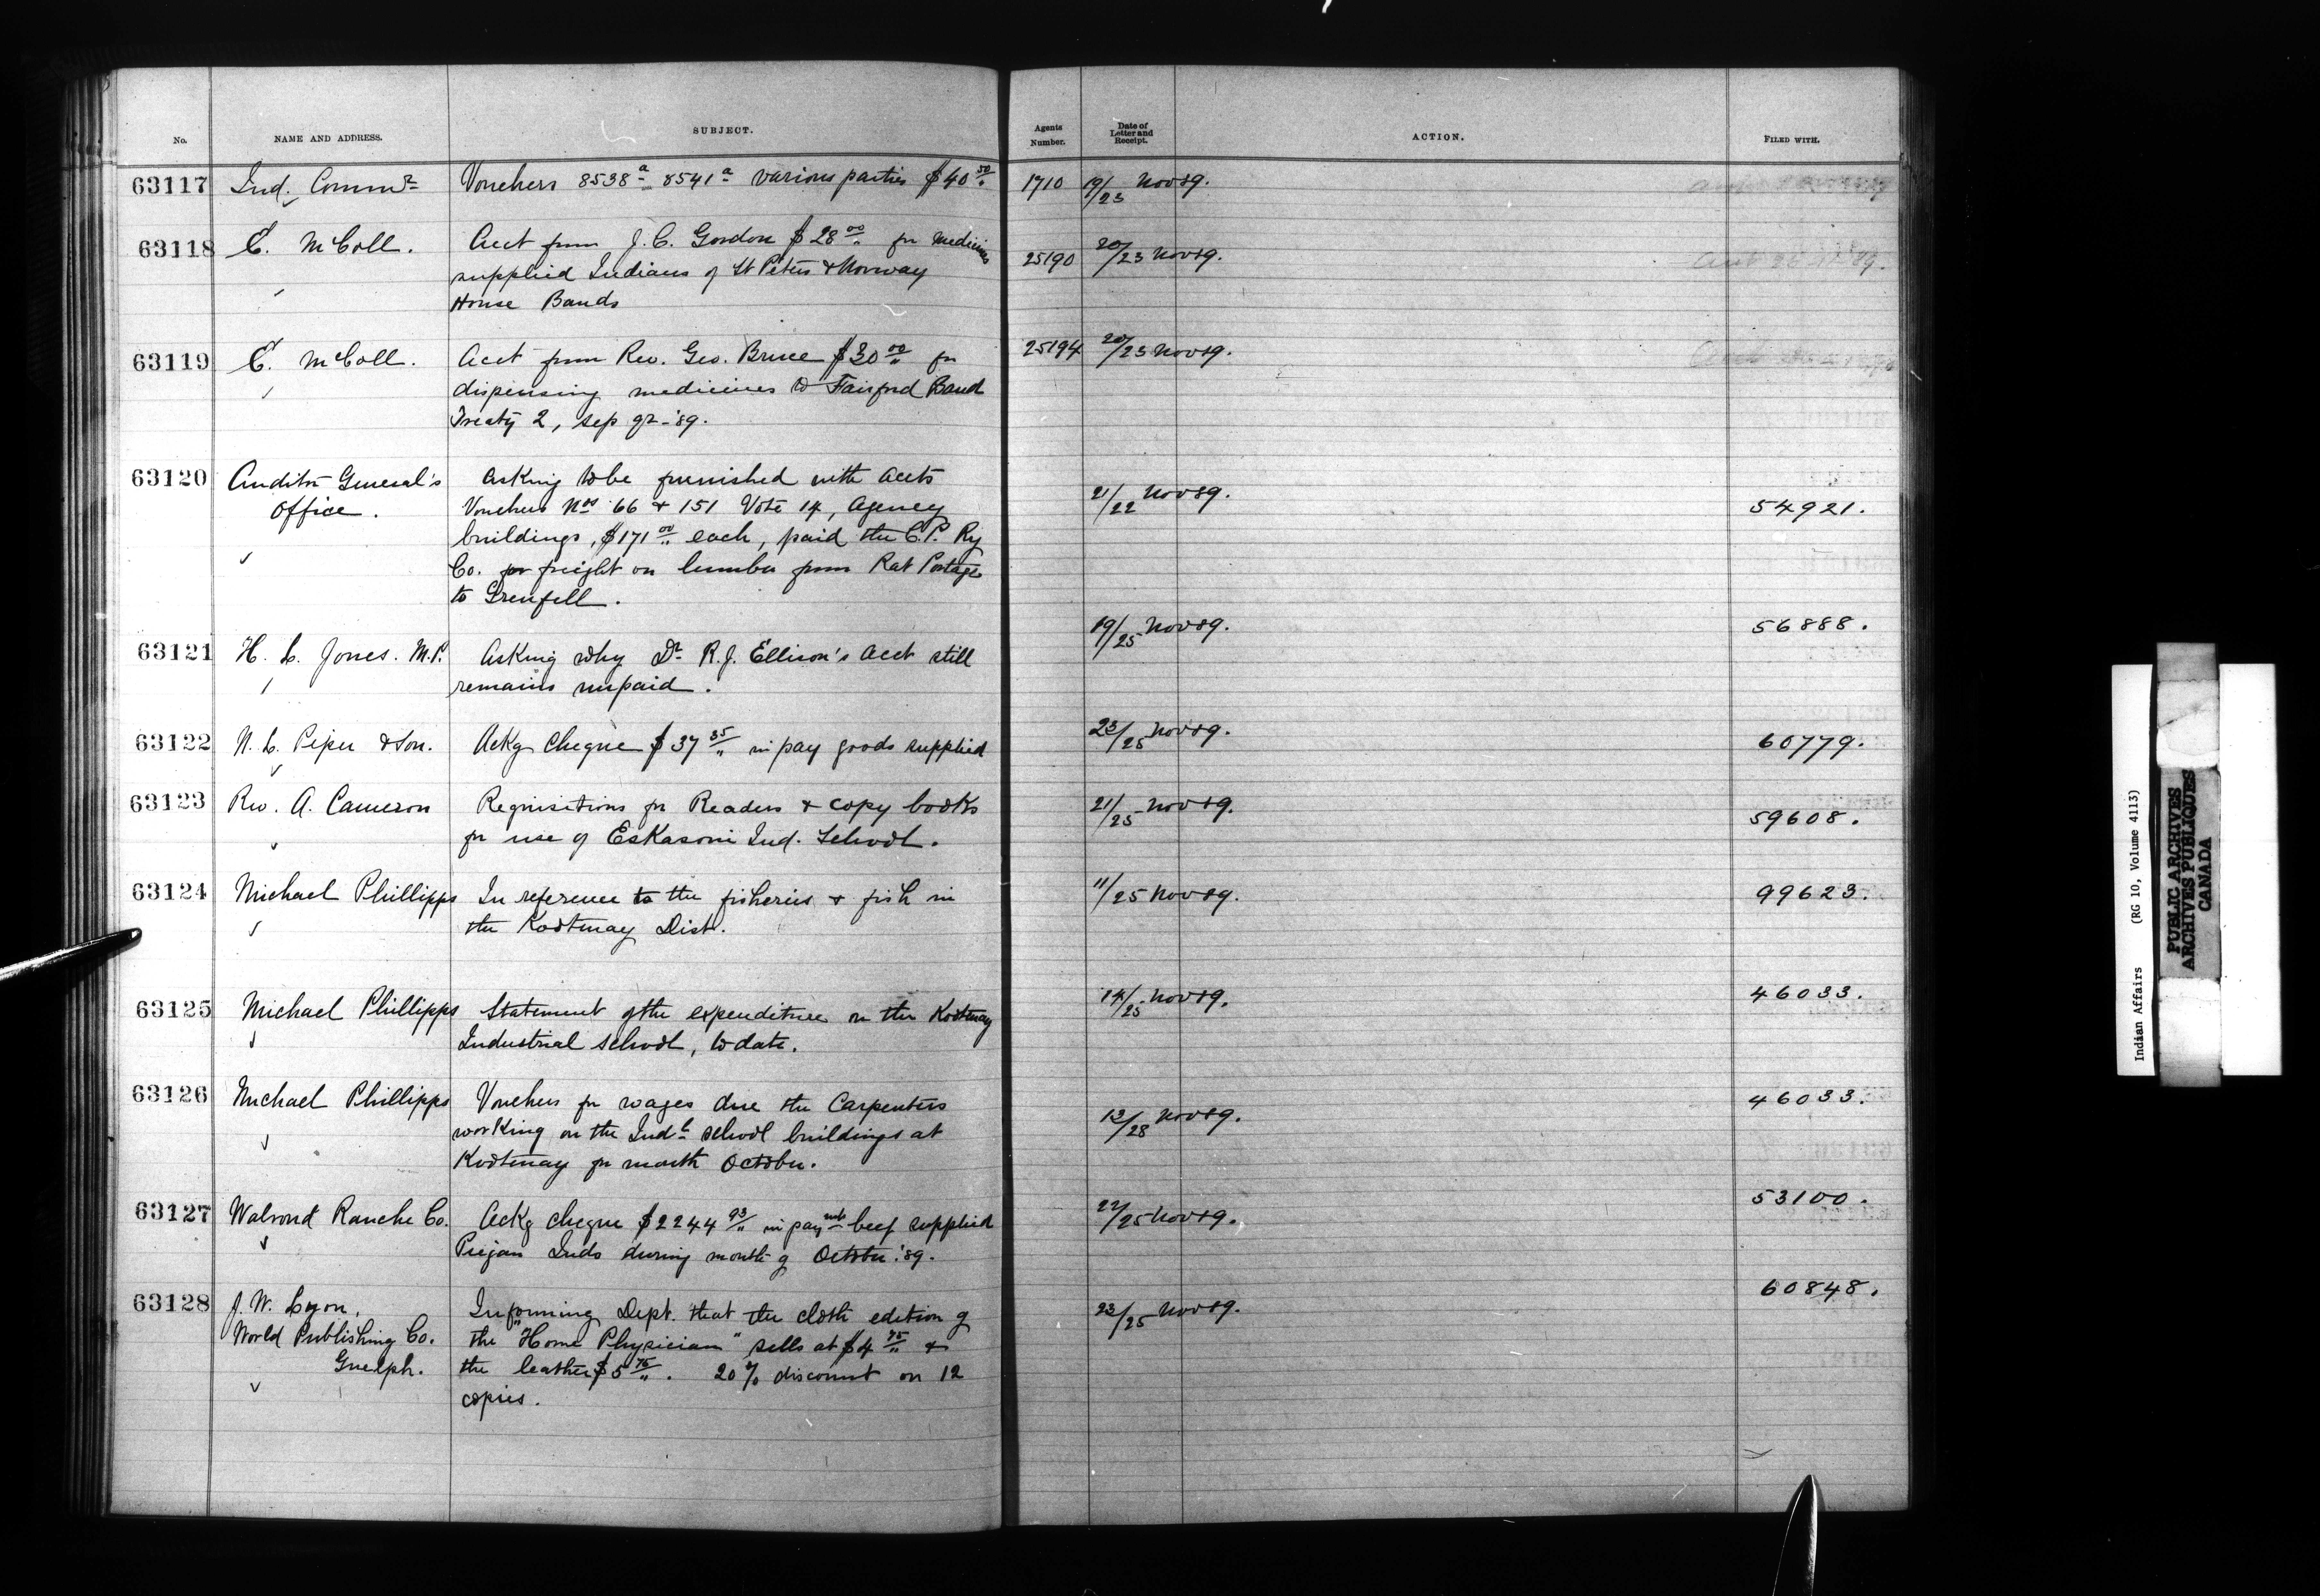 No. NAME AND ADDRESS. SUBJECT. Agents Number. Date of Letter and Receipt. ACTION. FILED WITH.
63117 Ind. Commr Vouchers 8538a 8541a various parties $40 50 1710 19/23 Nov 89.
63118 E. McColl. Acct from J. C. Gordon $28 00 for medicines 25190 20/23 Nov 89.
supplied Indians of St Peters & Norway
House Bands
63119 E. McColl. Acct from Rev. Geo. Bruce $30 00 for 25194 20/23 Nov 89.
dispensing medicines to Fairford Band
Treaty 2, Sep qr - '89.
63120 Auditor General's Asking to be furnished with accts 21/22 Nov 89. 54921.
Office. Vouchers Nos 66 & 151 Vote 14, Agency
buildings, $171 00 each, paid the C.P. Ry
Co. for freight on lumber from Rat Portage
to Grenfell.
63121 H. L. Jones. M.P. Asking why Dr R.J. Ellison's acct still 19/25 Nov 89. 56888.
remains unpaid.
63122 N. L. Piper & Son. Ackg cheque $37 35 in pay goods supplied 23/25 Nov 89. 60779.
63123 Rev. A. Cameron Requisitions for Readers & copy books 21/25 Nov 89. 59608.
for use of Eskasoni Ind. School.
63124 Michael Phillipps In reference to the fisheries & fish in 11/25 Nov 89. 99623.
the Kootenay Dist.
63125 Michael Phillipps Statement of the expenditure on the Kootenay 14/25 Nov 89. 46033.
Industrial School, to date.
63126 Michael Phillipps Vouchers for wages due the Carpenters 13/28 Nov 89. 46033.
working on the Indl School buildings at
Kootenay for month October.
63127 Walrond Ranche Co. Ackg cheque $2244 93 in paymt beef supplied 22/25 Nov 89. 53100.
Piegan Inds during month of October '89.
63128 J. W. Lyon. Informing Dept. that the cloth edition of 23/25 Nov 89. 60848.
World Publishing Co. the "Home Physician" sells at $4 75 &
Guelph. the leather $5 75. 20% discount on 12
copies.
Indian Affairs (RG 10, Volume 4113)
PUBLIC ARCHIVES
ARCHIVES PUBLIQUES
CANADA